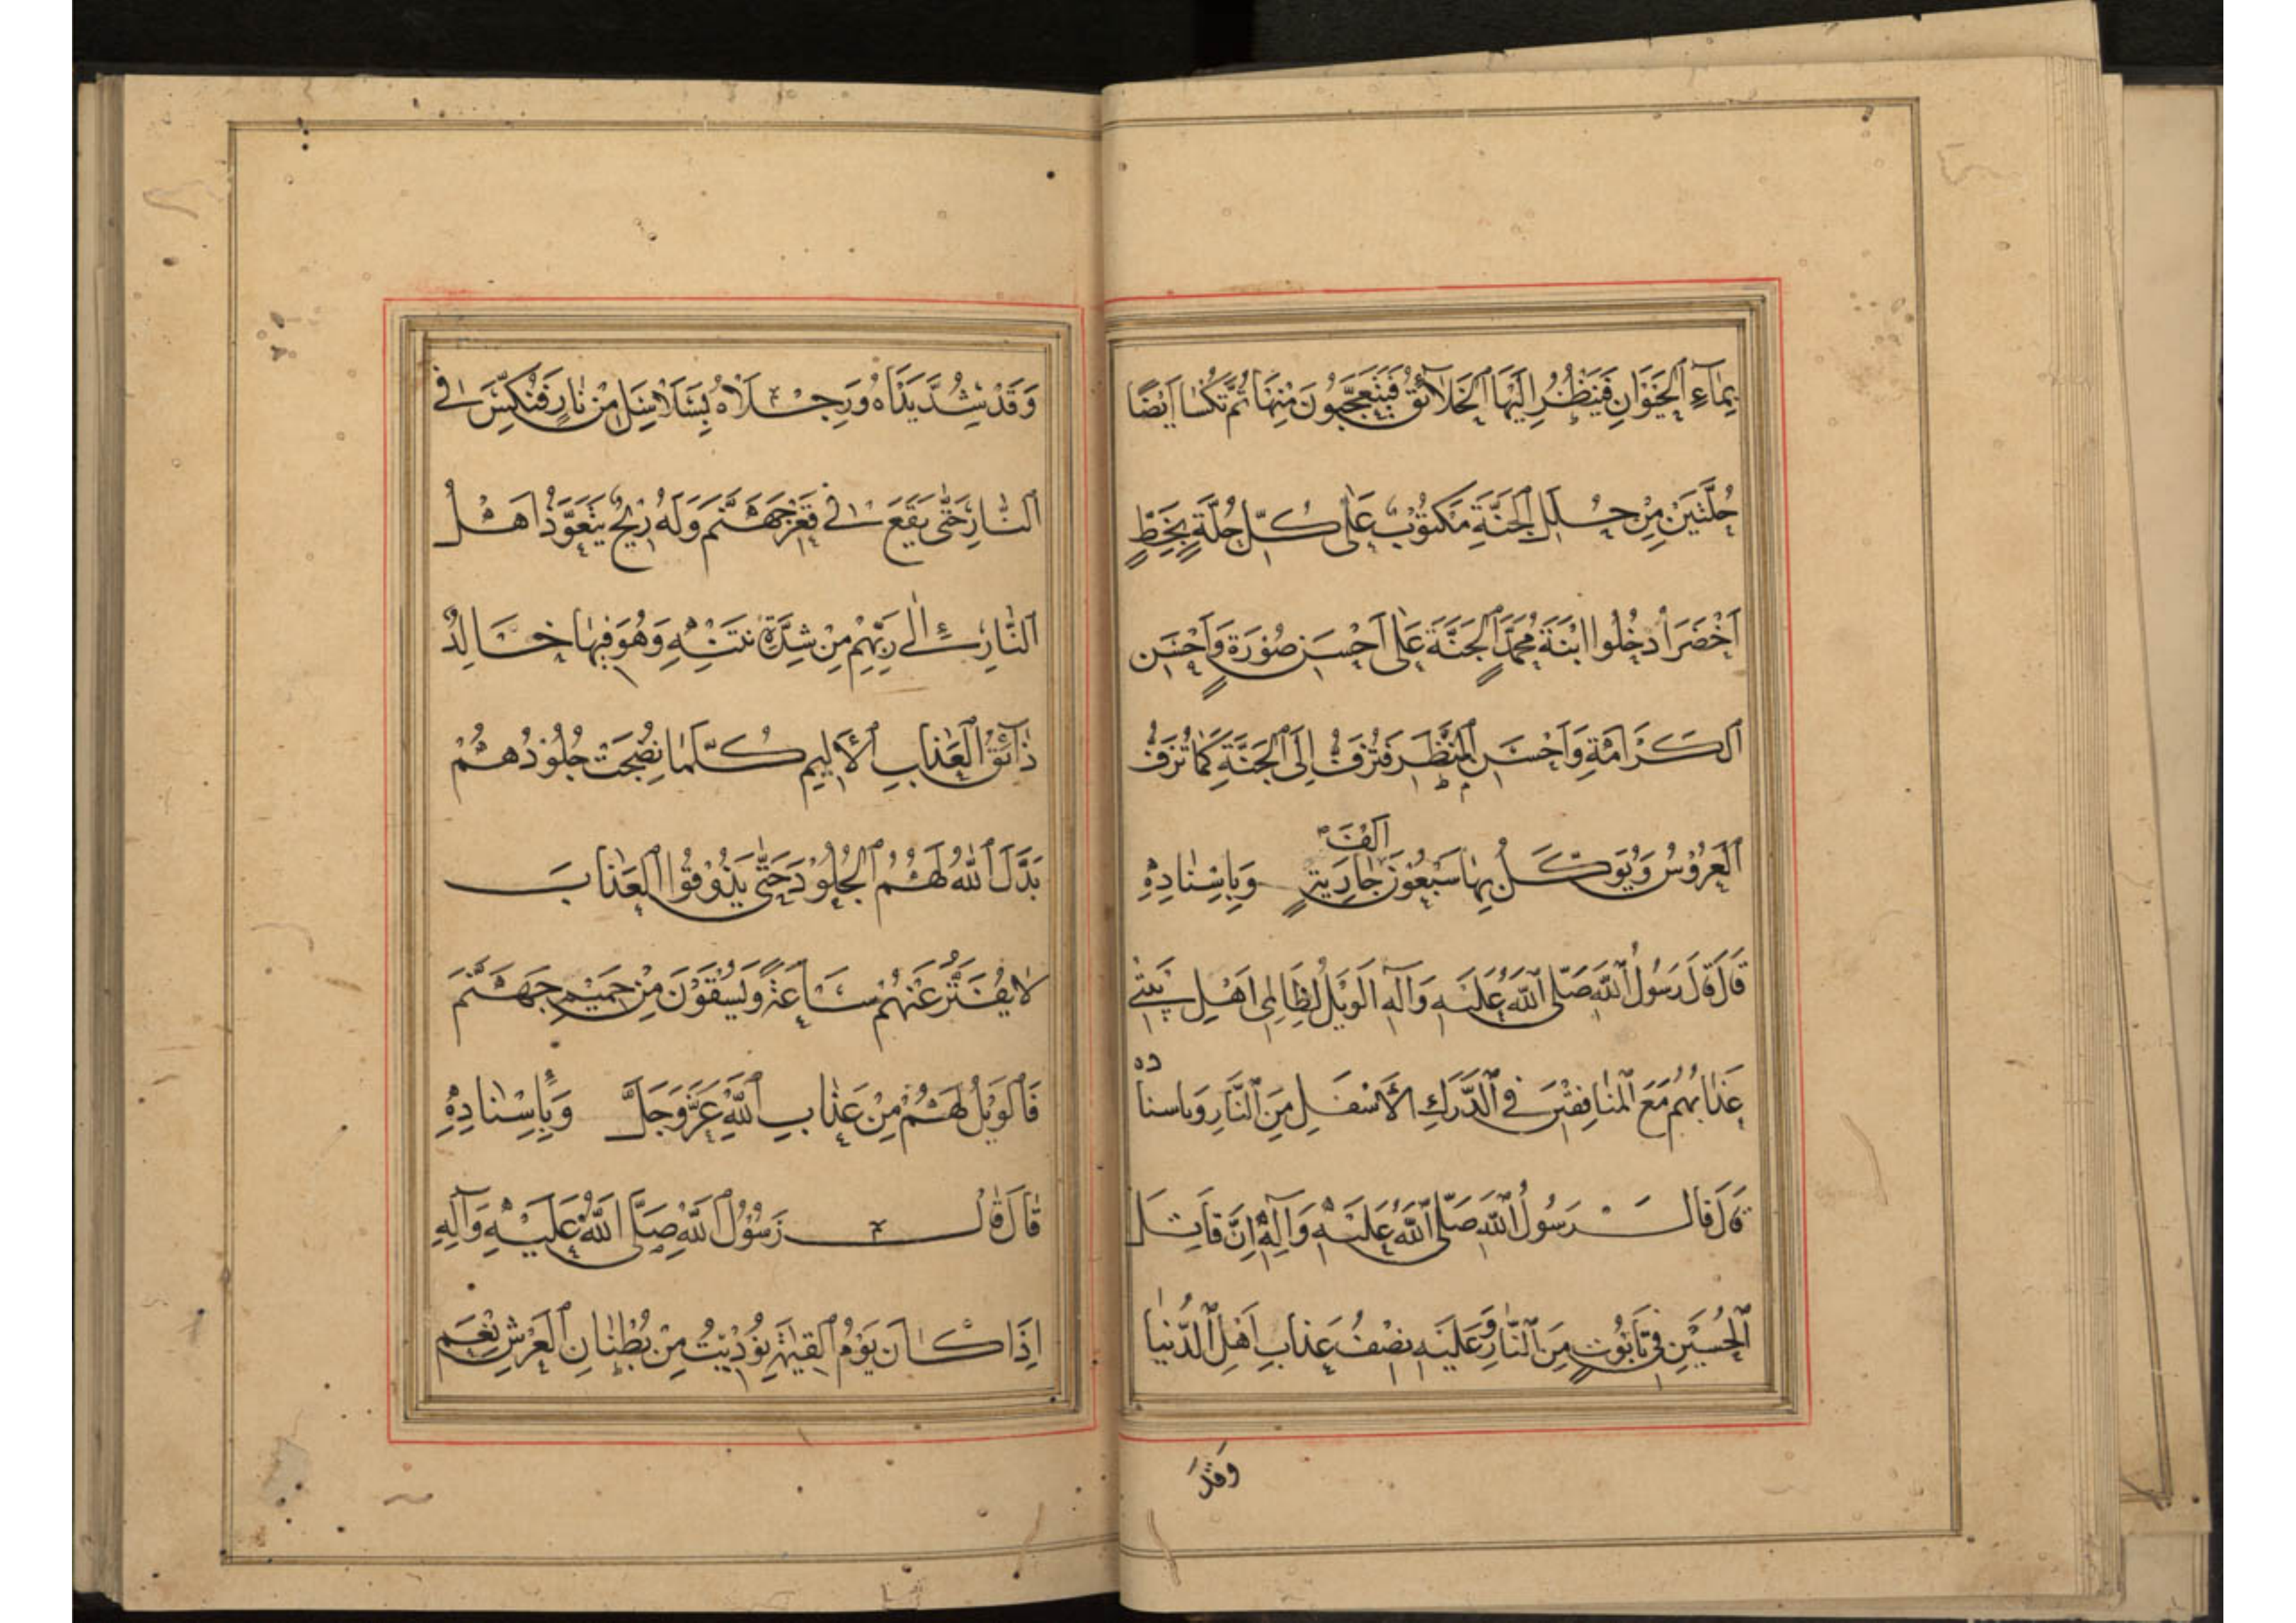 بِمَاءِ الْحَيَوَانِ فَيَنْظُرُ اِلَيْهَا الْخَلَائِقُ فَيَتَعَجَّبُونَ مِنْهَا ثُمَّ تُكْسَا اَيْضًا
حُلَّتَيْنِ مِنْ حُلَلِ الْجَنَّةِ مَكْتُوبٌ عَلٰى كُلِّ حُلَّةٍ بِخَطٍّ
اَخْضَرَ اَدْخِلُوا ابْنَةَ مُحَمَّدٍ الْجَنَّةَ عَلٰى اَحْسَنِ صُورَةٍ وَاَحْسَنِ
الْكَرَامَةِ وَاَحْسَنِ الْمَنْظَرِ فَتُزَفُّ اِلَى الْجَنَّةِ كَمَا تُزَفُّ
الْعَرُوسُ وَيُوَكَّلُ بِهَا سَبْعُونَ اَلْفَ جَارِيَةٍ وَبِاِسْنَادِهِ
قَالَ قَالَ رَسُولُ اللّٰهِ صَلَّى اللّٰهُ عَلَيْهِ وَآلِهِ اَلْوَيْلُ لِظَالِمِي اَهْلِ بَيْتِي
عَذَابُهُمْ مَعَ الْمُنَافِقِينَ فِي الدَّرَكِ الْاَسْفَلِ مِنَ النَّارِ وباسناده
قَالَ قَالَ رَسُولُ اللّٰهِ صَلَّى اللّٰهُ عَلَيْهِ وَآلِهِ اِنَّ قَاتِلَ
الْحُسَيْنِ فِي تَابُوتٍ مِنَ النَّارِ وَعَلَيْهِ نِصْفُ عَذَابِ اَهْلِ الدُّنْيَا
وَقَدْ
وَقَدْ شُدَّ يَدَاهُ وَرِجْلَاهُ بِسَلَاسِلَ مِنْ نَارٍ فَنُكِّسَ فِي
النَّارِ حَتّٰى يَقَعَ فِي قَعْرِ جَهَنَّمَ وَلَهُ رِيحٌ يَتَعَوَّذُ اَهْلُ
النَّارِ اِلٰى رَبِّهِمْ مِنْ شِدَّةِ نَتَنِهِ وَهُوَ فِيهَا خَالِدٌ
ذَائِقُ الْعَذَابِ الْاَلِيمِ كُلَّمَا نَضِجَتْ جُلُودُهُمْ
بَدَّلَ اللّٰهُ لَهُمُ الْجُلُودَ حَتّٰى يَذُوقُوا الْعَذَابَ
لَا يُفَتَّرُ عَنْهُمْ سَاعَةً وَيُسْقَوْنَ مِنْ حَمِيمِ جَهَنَّمَ
فَالْوَيْلُ لَهُمْ مِنْ عَذَابِ اللّٰهِ عَزَّ وَجَلَّ وَبِاِسْنَادِهِ
قَالَ قَالَ رَسُولُ اللّٰهِ صَلَّى اللّٰهُ عَلَيْهِ وَآلِهِ
اِذَا كَانَ يَوْمُ الْقِيٰمَةِ نُودِيتُ مِنْ بُطْنَانِ الْعَرْشِ نِعْمَ